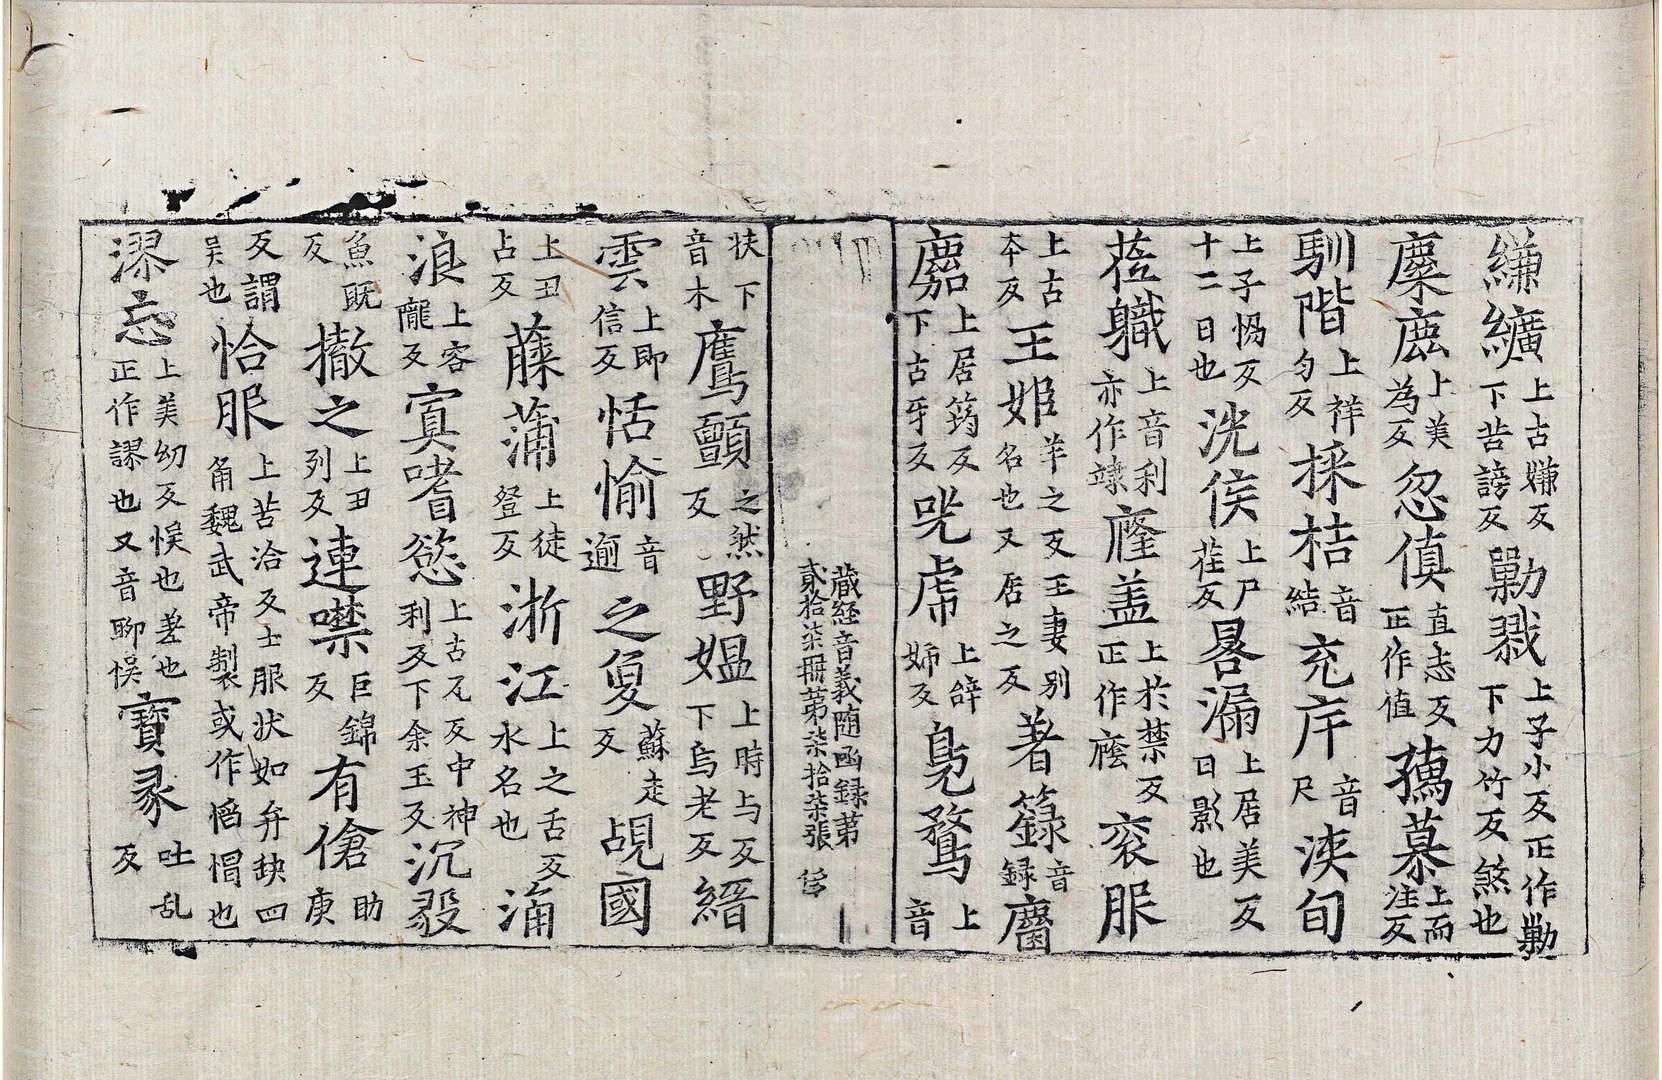 縑纊上古嫌反下苦謗反勦戮上子小反正作勦下力竹反煞也
麋鹿上美為反忽値直志反正作值孺慕上而注反
馴階上祥勻反採桔音結充庌音尺浹旬
十二日也上子惕反洗侯上尸荏反晷漏上居美反日影也
莅職上音利亦作竦廕盖上於禁反正作廕衮服
上古夲反王姫羊之反王妻别名也又居之反著籙音録䴥
麏上居筠反下古牙反咒虎上辝姊反鳬鶩上音
藏経音義随函録第貳拾柒冊第柒拾柒張
扶下音木鷹鸇之然反野媪上時与反下烏老反縉
雲上即信反恬愉音逾之叟蘇走反覘國
上丑占反藤蒲上徒登反浙江上之舌反水名也涌
浪上容隴反寘嗜慾上古瓦反中神利反下余玉反沉毅
魚既反撤之上丑列反連噤巨錦反有傖助庚
反謂吴也恰服上苦洽反士服状如弁缺四角魏武帝製或作㡊帽也
漻忘上美幼反悮也差也正作謬也又音聊悮寶彖吐乱反